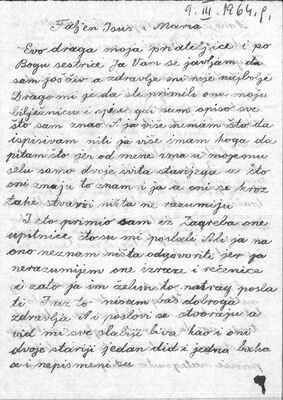 9. III. 1964. g.
Faljen Isus i Maria
Evo draga moja priateljice i po
Bogu sestrice Ja Vam se javljam da
sam još živ a zdravlje oni nije najbolje
Drago mi je da ste primile onu moju
bilježnicu i spise gdi sam opiso sve
što sam znao A ja više nemam što da
ispisivam niti ja više imam koga da
pitam što jer od mene ima u mojemu
selu samo dvoje svita starijega a što
oni znaju to znam i ja a oni se kroz
take stvari ništa ne razumiju
I eto primio sam iz Zagreba one
upitnice što su mi poslali Ali ja na
ono neznam ništa odgovoriti jer ja
nerazumijem one izraze i rečenice
i zato ja im želim to natrag posla
ti I uz to nisam baš dobroga
zdravlja A i poslovi se otvoraju a
vid mi sve slabiji biva kao i oni
dvoje stariji jedan did i jedna baka
a i nepismeni su